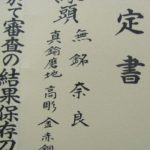 定書
頭
無銘 奈良
真鍮磨地 高彫 金赤銅
審査の結果保存刀